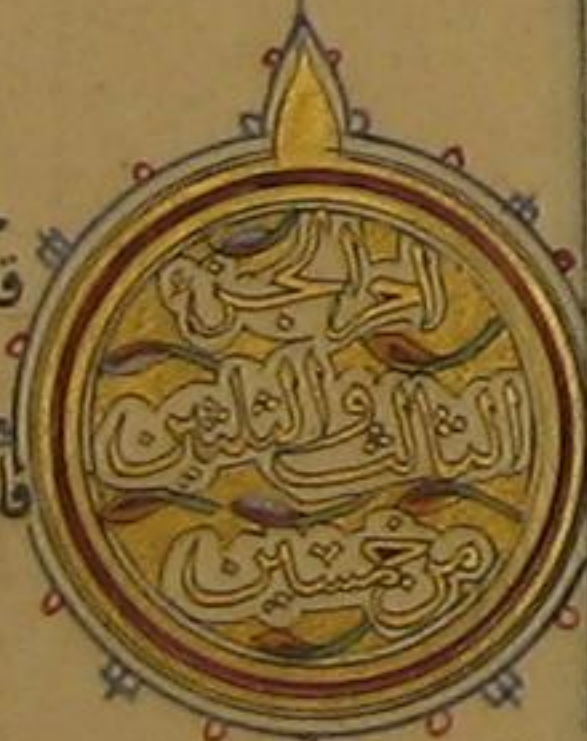 اخر الجزء
الثالث والثلثين
من خمسين